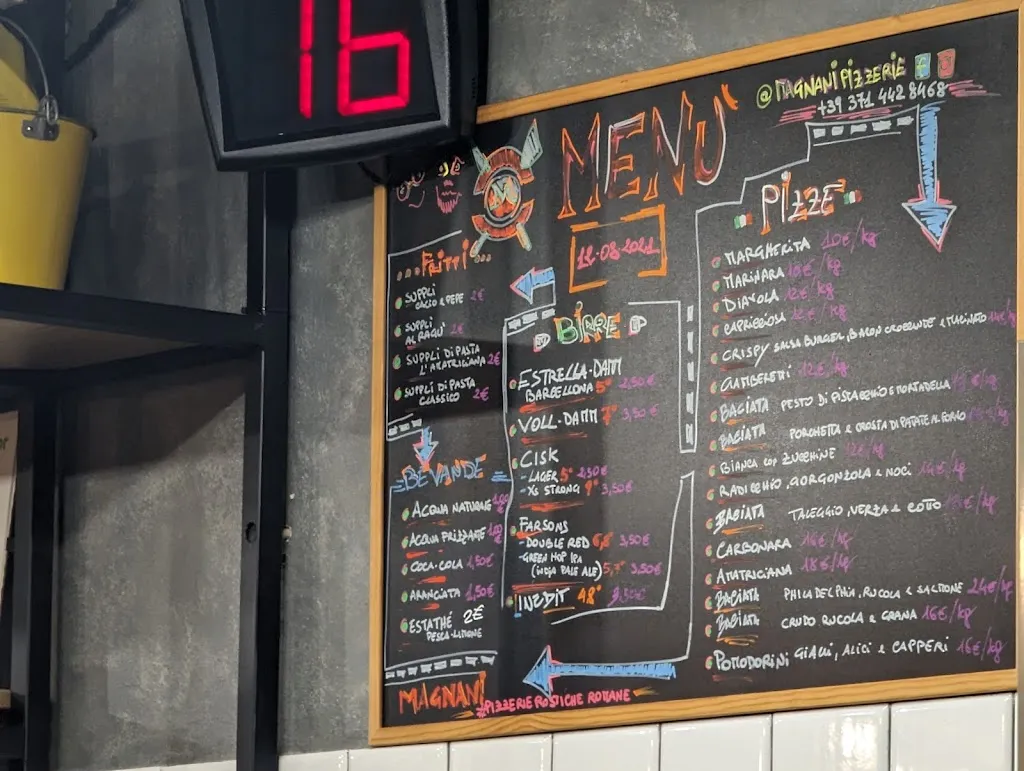 16
@MAGNANIPIZZERIE
+39 371 442 8468
MENU'
12-08-2021
FRITTI
SUPPLÌ
CACIO e PEPE 2€
SUPPLÌ
AL RAGU' 2€
SUPPLÌ DI PASTA
L'AMATRICIANA 2€
SUPPLÌ DI PASTA
CLASSICO 2€
BEVANDE
ACQUA NATURALE 1,00
ACQUA FRIZZANTE 1,00
COCA-COLA 1,50€
ARANCIATA 1,50€
ESTATHÉ 2€
PESCA-LIMONE
BIRRE
ESTRELLA-DAMM
BARCELLONA 5° 2,50€
VOLL-DAMM 7° 3,50€
CISK
-LAGER 5° 2,50€
-XS STRONG 9° 3,50€
FARSONS
-DOUBLE RED 6,8° 3,50€
-GREEN HOP IPA
(INDIA PALE ALE) 5,7° 3,50€
INEDIT 4,8° 3,50€
PIZZE
MARGHERITA 10€/kg
MARINARA 10€/kg
DIAVOLA 12€/kg
CAPRICCIOSA 12€/kg
CRISPY SALSA BURGER, BACON CROCCANTE e MACINATO
GAMBERETTI 12€/kg
BACIATA PESTO DI PISTACCHIO E MORTADELLA
BACIATA PORCHETTA e CROSTA DI PATATE AL FORNO
BIANCA CON ZUCCHINE 12€/kg
RADICCHIO, GORGONZOLA e NOCI 14€/kg
BACIATA TALEGGIO, VERZA e COTTO
CARBONARA 16€/kg
AMATRICIANA 18€/kg
BACIATA PHILADELPHIA, RUCOLA e SALMONE 24€/kg
BACIATA CRUDO RUCOLA e GRANA 16€/kg
POMODORINI GIALLI, ALICI e CAPPERI 16€/kg
MAGNANI
PIZZERIE ROSTICHE ROMANE